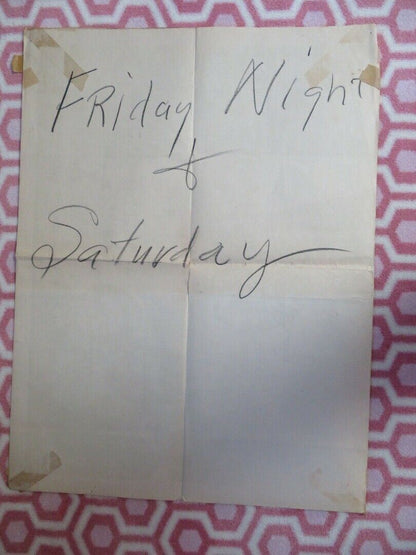 Friday Night
+
Saturday